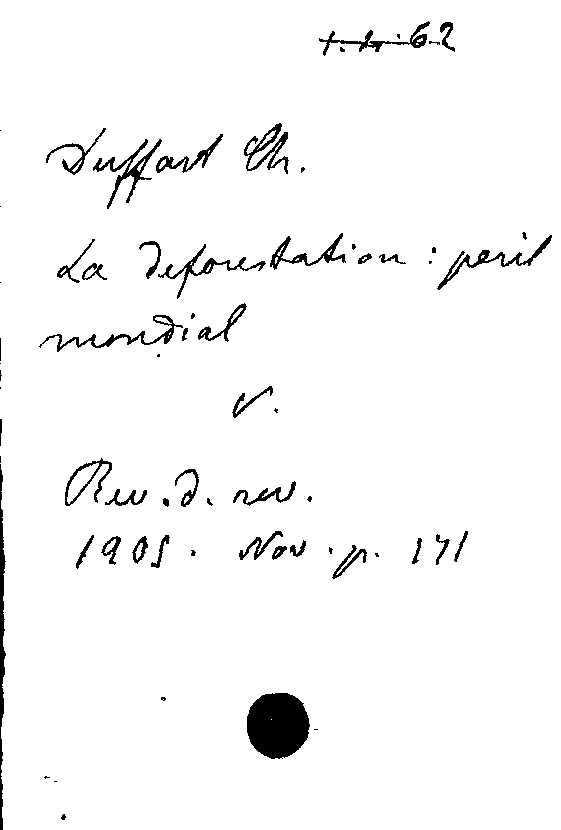 62
Duffart Ch.
La deforestation : peril
mondial
v.
Rev. d. rev.
1905. Nov. p. 171